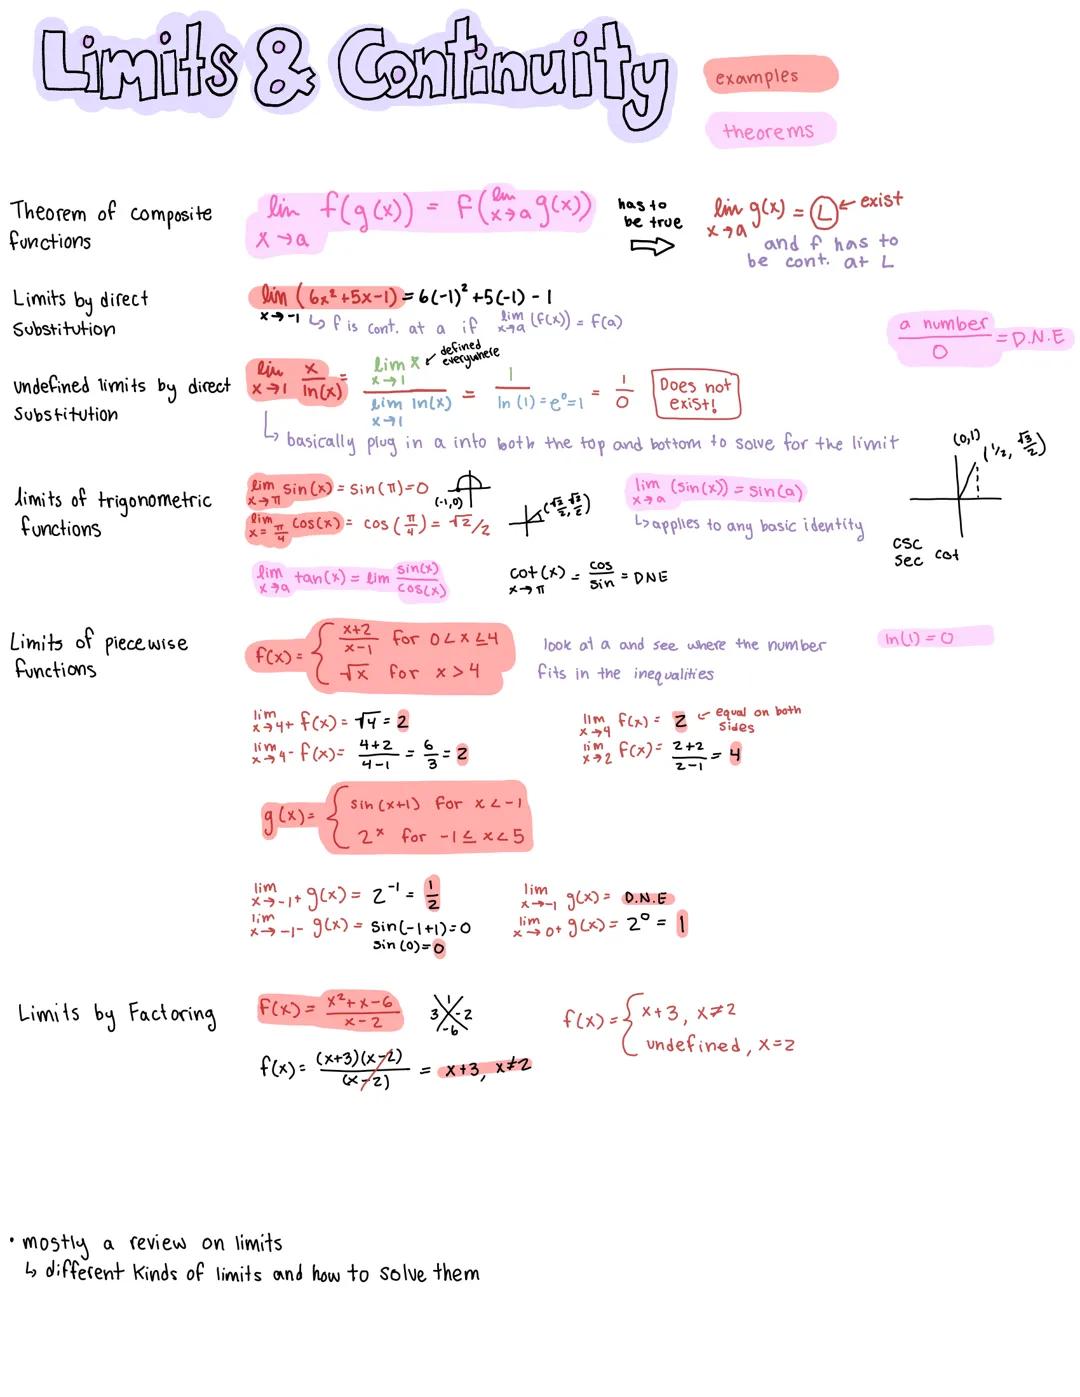 Limits & Continuity
examples
theorems
Theorem of composite functions
lim x→a f(g(x)) = f(lim x→a g(x))
has to be true ⇒
lim x→a g(x) = L ← exist
and f has to be cont. at L
Limits by direct Substitution
lim x→-1 (6x²+5x-1) = 6(-1)²+5(-1)-1
↳ f is cont. at a if lim x→a (f(x)) = f(a)
a number / 0 = D.N.E
undefined limits by direct Substitution
lim x→1 x/ln(x) = lim x→1 x / lim x→1 ln(x) = 1 / ln(1)=e⁰=1 = 1/0
defined everywhere
Does not exist!
↳ basically plug in a into both the top and bottom to solve for the limit
limits of trigonometric functions
lim x→π sin(x) = sin(π)=0
(-1,0)
lim x=π/4 cos(x) = cos(π/4) = √2/2
(√2/2, √2/2)
lim x→a (sin(x)) = sin(a)
↳ applies to any basic identity
(0,1)
(1/2, √3/2)
csc
sec cot
lim x→a tan(x) = lim sin(x)/cos(x)
cot(x) x→π = cos/sin = DNE
Limits of piecewise functions
f(x) = { x+2/x-1 for 0<x≤4
√x for x>4
look at a and see where the number
fits in the inequalities
ln(1) = 0
lim x→4+ f(x) = √4 = 2
lim x→4- f(x) = 4+2/4-1 = 6/3 = 2
lim x→4 f(x) = 2 ← equal on both sides
lim x→2 f(x) = 2+2/2-1 = 4
g(x) = { sin(x+1) for x<-1
2ˣ for -1≤x<5
lim x→-1+ g(x) = 2⁻¹ = 1/2
lim x→-1- g(x) = sin(-1+1)=0
sin(0)=0
lim x→-1 g(x) = D.N.E
lim x→0+ g(x) = 2⁰ = 1
Limits by Factoring
f(x) = x²+x-6/x-2
1
3 -2
-6
f(x) = { x+3, x≠2
undefined, x=2
f(x) = (x+3)(x-2)/(x-2) = x+3, x≠2
• mostly a review on limits
↳ different kinds of limits and how to solve them